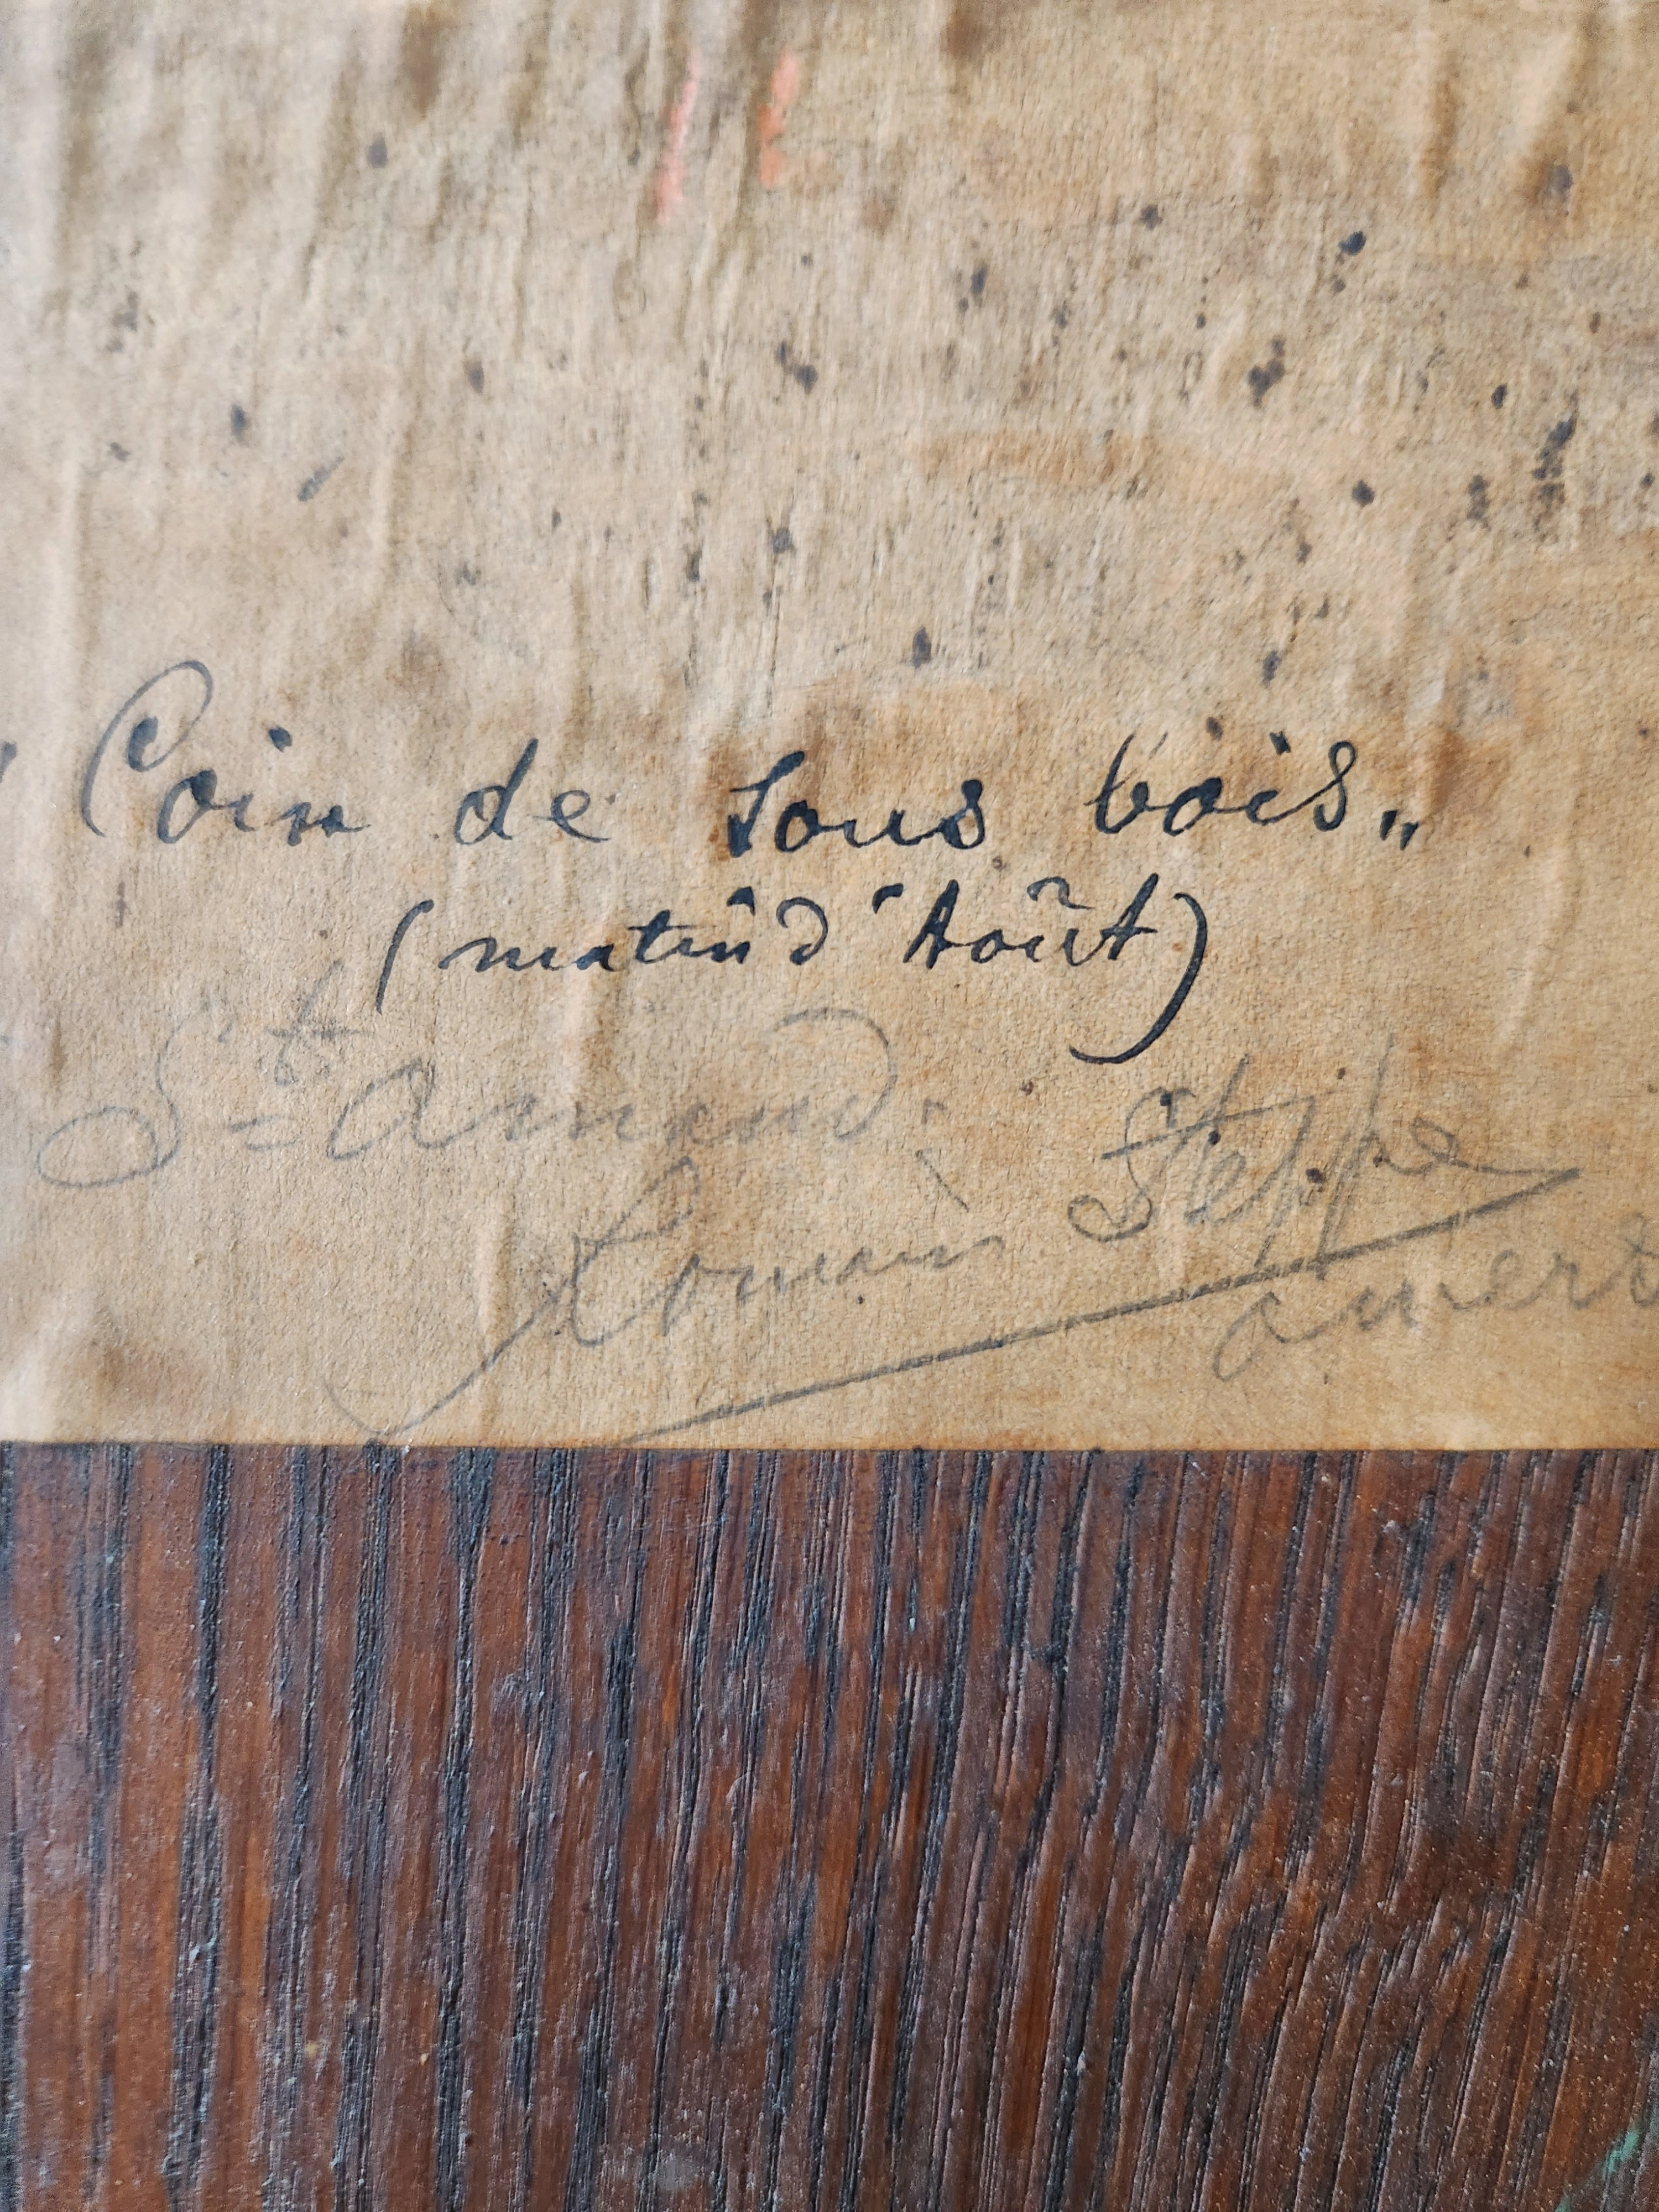 " Coin de sous bois „
(matin d'Août)
St= Amand.
Romain Steppe